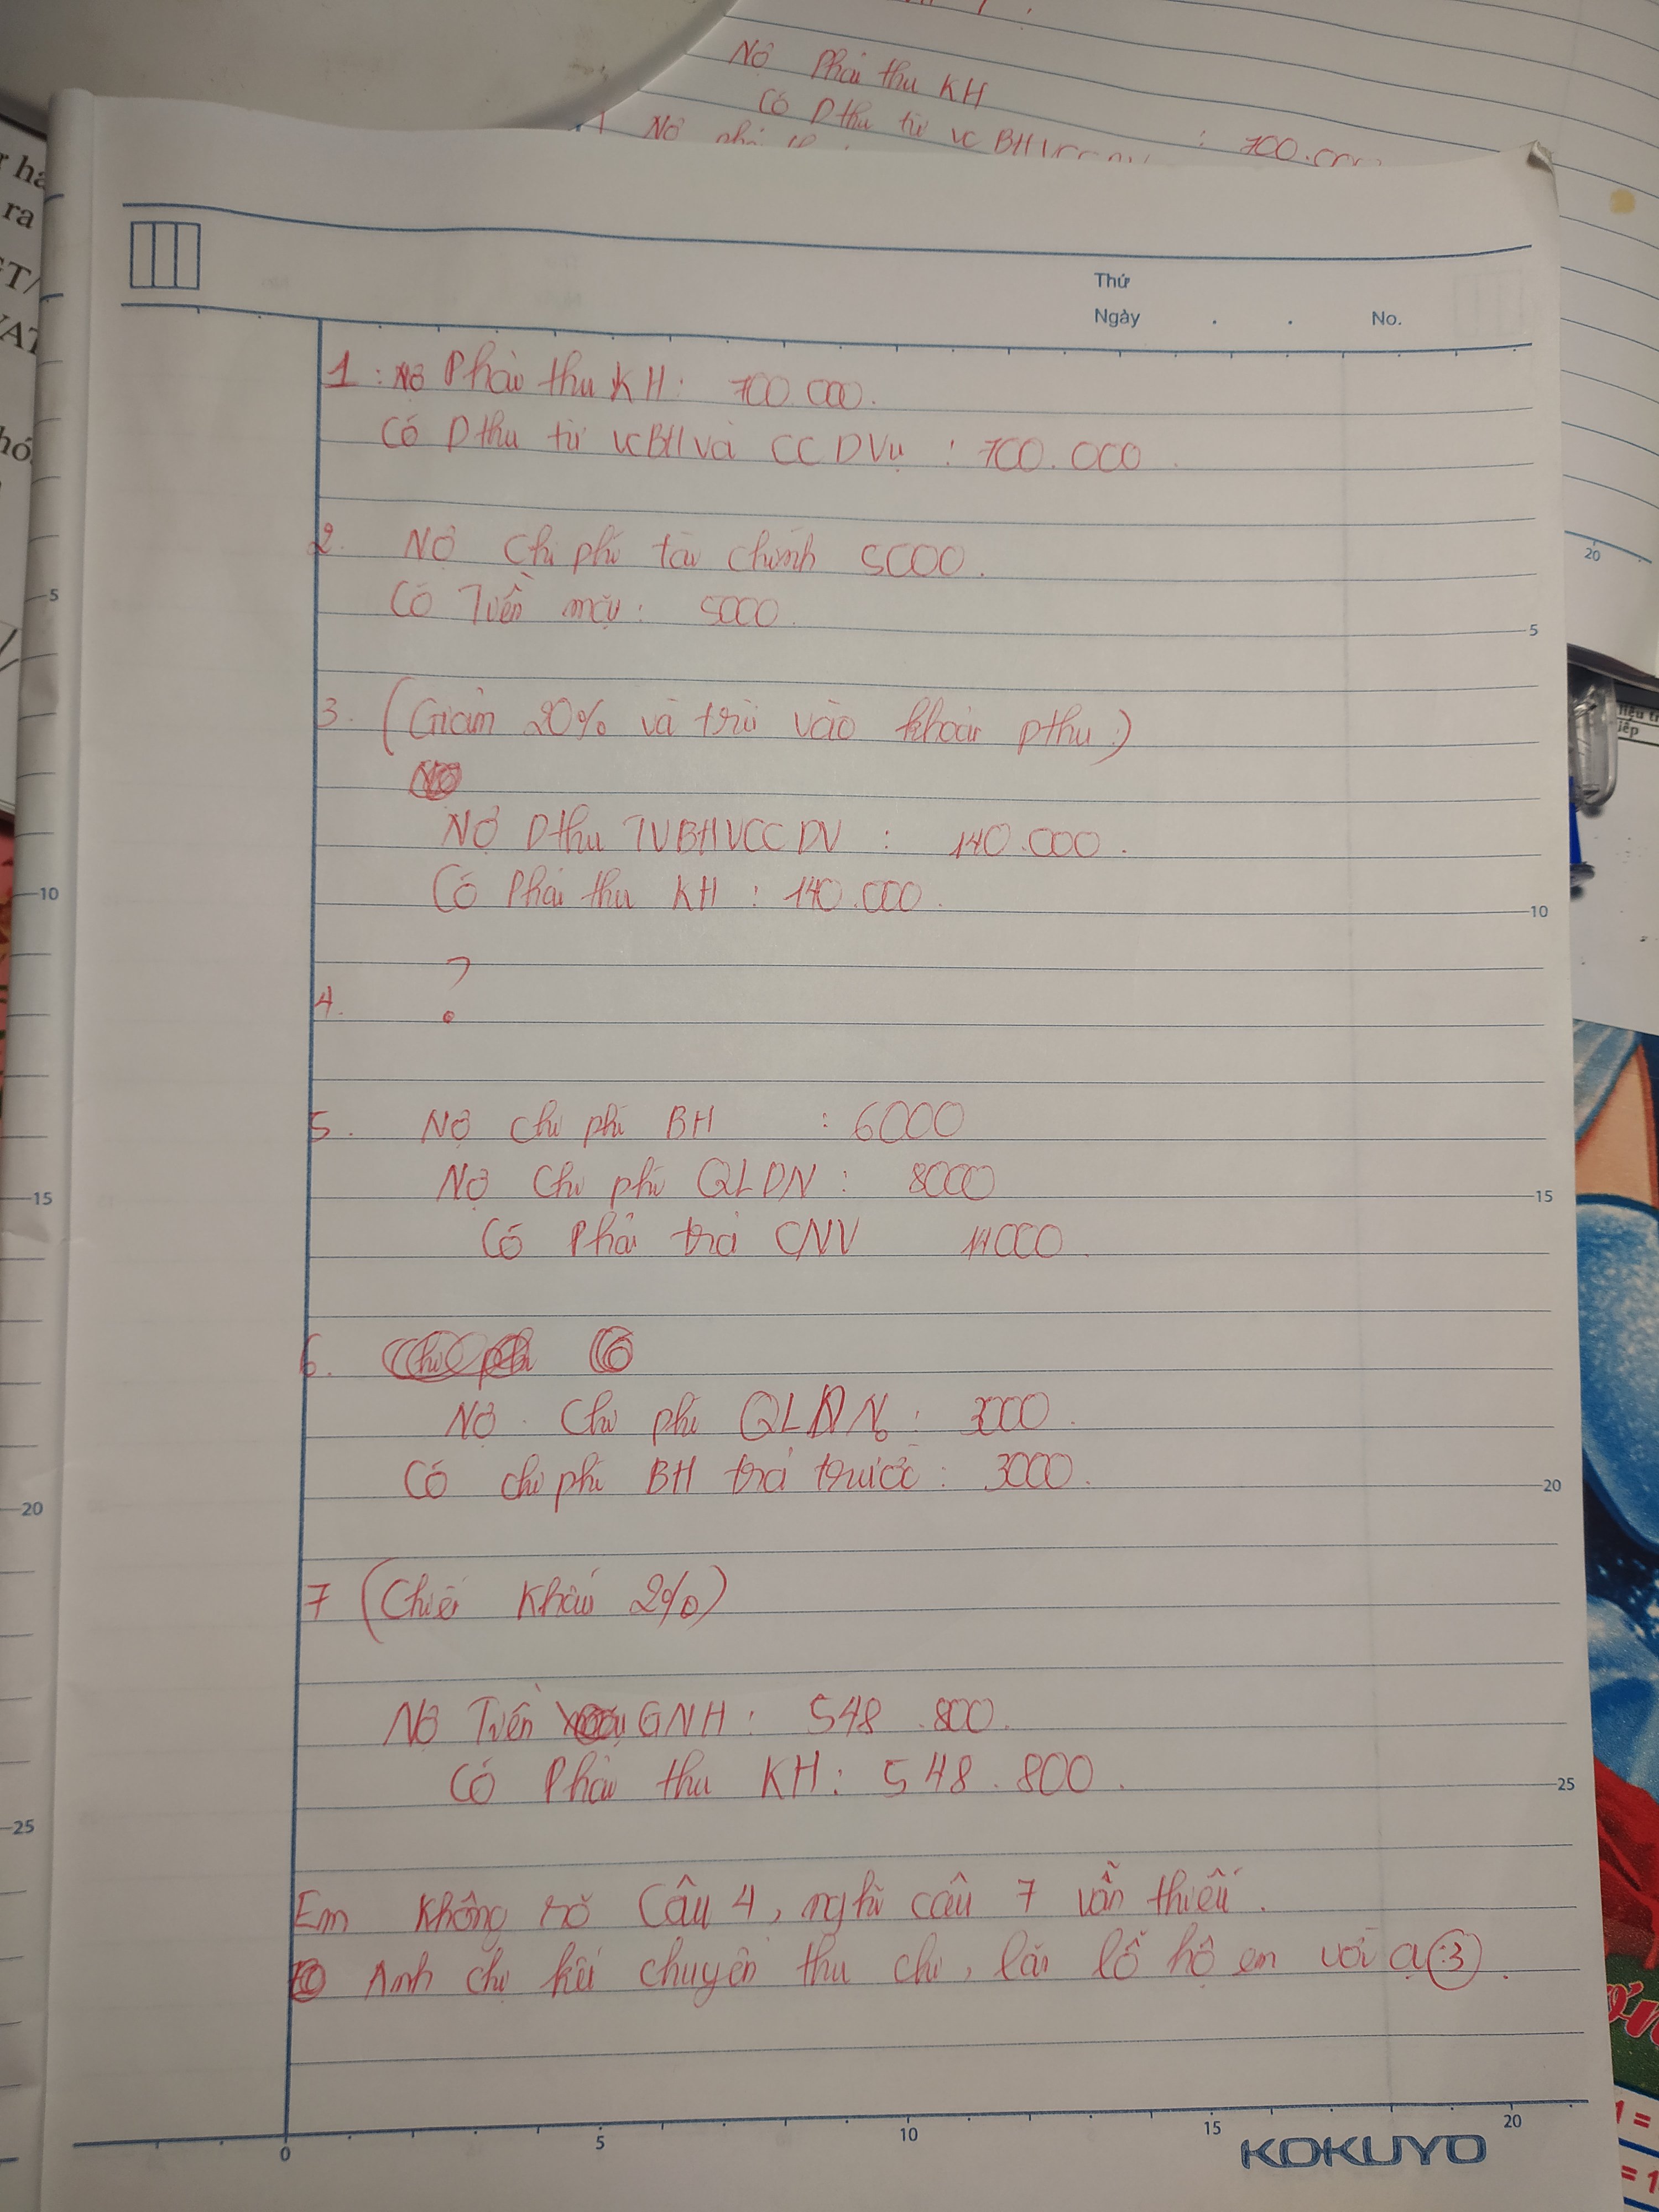 Nợ Phải thu KH
Có Dthu từ vc BH : 700.000
Nợ
r há
ra
T/
VAT
Thứ
Ngày . . No.
1: Nợ Phải thu KH: 700.000.
Có Dthu từ vcBH và CCDVụ : 700.000.
2. Nợ Chi phí tài chính 5000.
Có Tiền mặt: 5000.
3. (Giảm 20% và trừ vào khoản pthu.)
Nợ Dthu TVBHVCCDV : 140.000.
Có Phải thu KH : 140.000.
4. ?
5. Nợ chi phí BH : 6000
Nợ Chi phí QLDN : 8000
Có Phải trả CNV 14000.
6.
Nợ Chi phí QLDN : 3000.
Có chi phí BH trả trước : 3000.
7 (Chiết Khấu 2%)
Nợ Tiền GNH : 548.800.
Có Phải thu KH : 548.800.
Em không rõ Câu 4, nghĩ câu 7 vẫn thiếu.
Anh chị kết chuyển thu chi, lãi lỗ hộ em với ạ :3.
5
10
15
20
25
5
10
15
20
25
0 5 10 15 20
KOKUYO
20
1 =
= 1